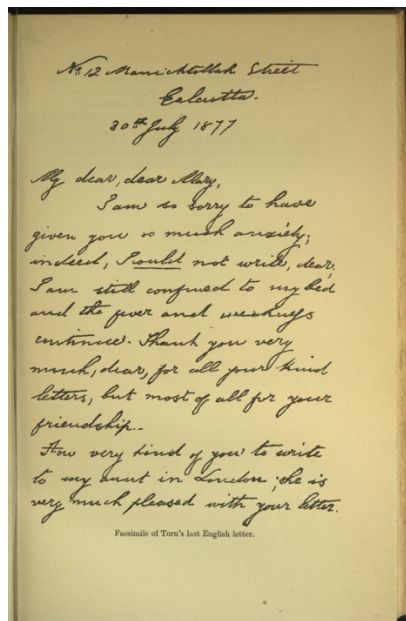 No 12 Manicktollah Street
Calcutta.
30th July 1877
My dear, dear Mary,
I am so sorry to have
given you so much anxiety;
indeed, I could not write, dear;
I am still confined to my bed
and the fever and weakness
continue. Thank you very
much, dear, for all your kind
letters, but most of all for your
friendship.
How very kind of you to write
to my aunt in London; she is
very much pleased with your letter.
Facsimile of Toru's last English letter.